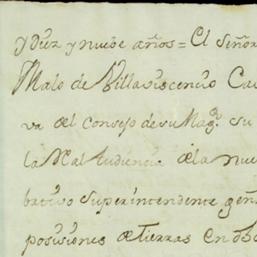 y Diez y nueve años = El Señor
Malo de Villaviscencio Ca
va del consejo de su Magᵈ. su
la Rˡ Audiencia de la nue
bativo superintendente gen
posisiones de tierras en dho